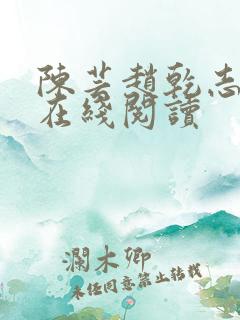 陳芸趙乾志
在綫閱讀
瀾木卿
未经同意禁止转载